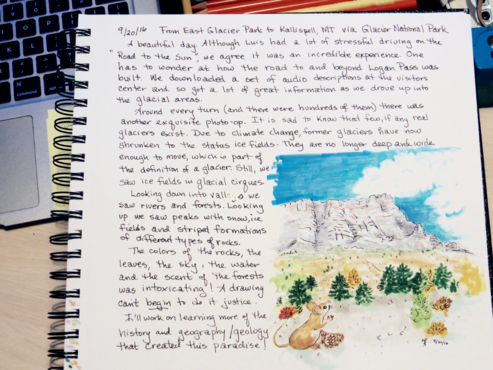 9/20/16 From East Glacier Park to Kallispell, MT via Glacier National Park.
A beautiful day. Although Luis had a lot of stressful driving on the
"Road to the Sun", we agree it was an incredible experience. One
has to wonder at how the road to and beyond Logan Pass was
built. We downloaded a set of audio descriptions at the visitors
center and so got a lot of great information as we drove up into
the glacial areas.
Around every turn (and there were hundreds of them) there was
another exquisite photo-op. It is sad to know that few, if any real
glaciers exist. Due to climate change, former glaciers have now
shrunken to the status ice fields. They are no longer deep and wide
enough to move, which is part of
the definition of a glacier. Still, we
saw ice fields in glacial cirques.
Looking down into valleys we
saw rivers and forests. Looking
up we saw peaks with snow, ice
fields and striped formations
of different types of rocks.
The colors of the rocks, the
leaves, the sky, the water
and the scent of the forests
was intoxicating! A drawing
can't begin to do it justice.
I'll work on learning more of the
history and geography/geology
that created this paradise!